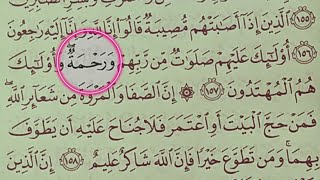 ٱلَّذِينَ إِذَآ أَصَٰبَتْهُم مُّصِيبَةٌ قَالُوٓا۟ إِنَّا لِلَّهِ وَإِنَّآ إِلَيْهِ رَٰجِعُونَ ١٥٥
١٥٦ أُو۟لَٰٓئِكَ عَلَيْهِمْ صَلَوَٰتٌ مِّن رَّبِّهِمْ وَرَحْمَةٌ ۖ وَأُو۟لَٰٓئِكَ
هُمُ ٱلْمُهْتَدُونَ ١٥٧ ۞ إِنَّ ٱلصَّفَا وَٱلْمَرْوَةَ مِن شَعَآئِرِ ٱللَّهِ ۖ
فَمَنْ حَجَّ ٱلْبَيْتَ أَوِ ٱعْتَمَرَ فَلَا جُنَاحَ عَلَيْهِ أَن يَطَّوَّفَ
بِهِمَا ۚ وَمَن تَطَوَّعَ خَيْرًا فَإِنَّ ٱللَّهَ شَاكِرٌ عَلِيمٌ ١٥٨ إِنَّ ٱلَّذِينَ